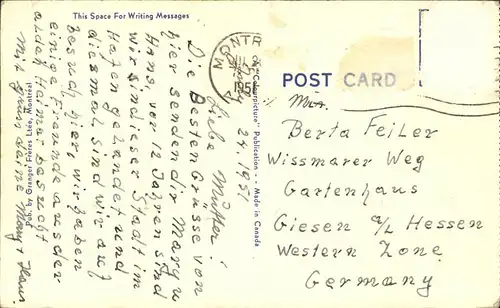 This Space For Writing Messages
Montreal
24.1951
Liebe Mutter!
Die Besten Grüsse von
hier senden dir Mary u
Hans, vor 12 Jahren sind
wir in dieser Stadt im
Hafen gelandet und
diesmal sind wir auf
besuch hier, wir haben
einige Freunde aus der
alden Heimat besucht
Mit gruss deine Mary + Hans
by
Novelties Ltd., Montreal
"Colourpicture" Publication - Made in Canada
MONTR
195
POST CARD
Berta Feiler
Wissmarer Weg
Gartenhaus
Giesen a/L Hessen
Western Zone
Germany